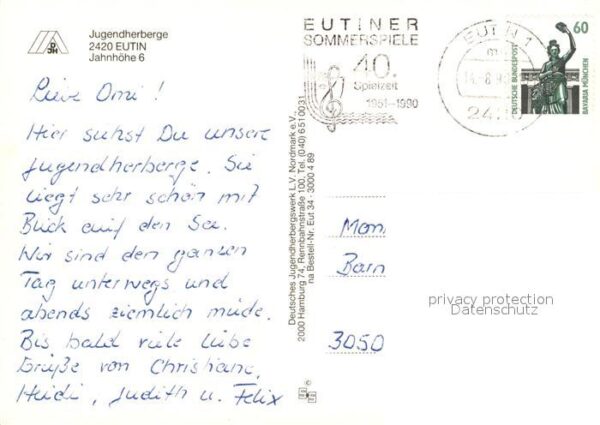 Jugendherberge
2420 EUTIN
Jahnhöhe 6
DJH
EUTINER
SOMMERSPIELE
40.
Spielzeit
1951-1990
EUTIN 1
60
DEUTSCHE BUNDESPOST
BAVARIA MÜNCHEN
Lieve Omi!
Hier siehst Du unsere
Jugendherberge. Sie
liegt sehr schön mit
Blick auf den See.
Wir sind den ganzen
Tag unterwegs und
abends ziemlich müde.
Bis bald viele liebe
Grüße von Christiane,
Heidi, Judith u. Felix
Deutsches Jugendherbergswerk L.V. Nordmark e.V.,
2000 Hamburg 74, Rennbahnstraße 100, Tel. (040) 6510031
na Bestell-Nr. Eut 34 · 3000 4 89
Mon
Barn
3050
privacy protection
Datenschutz